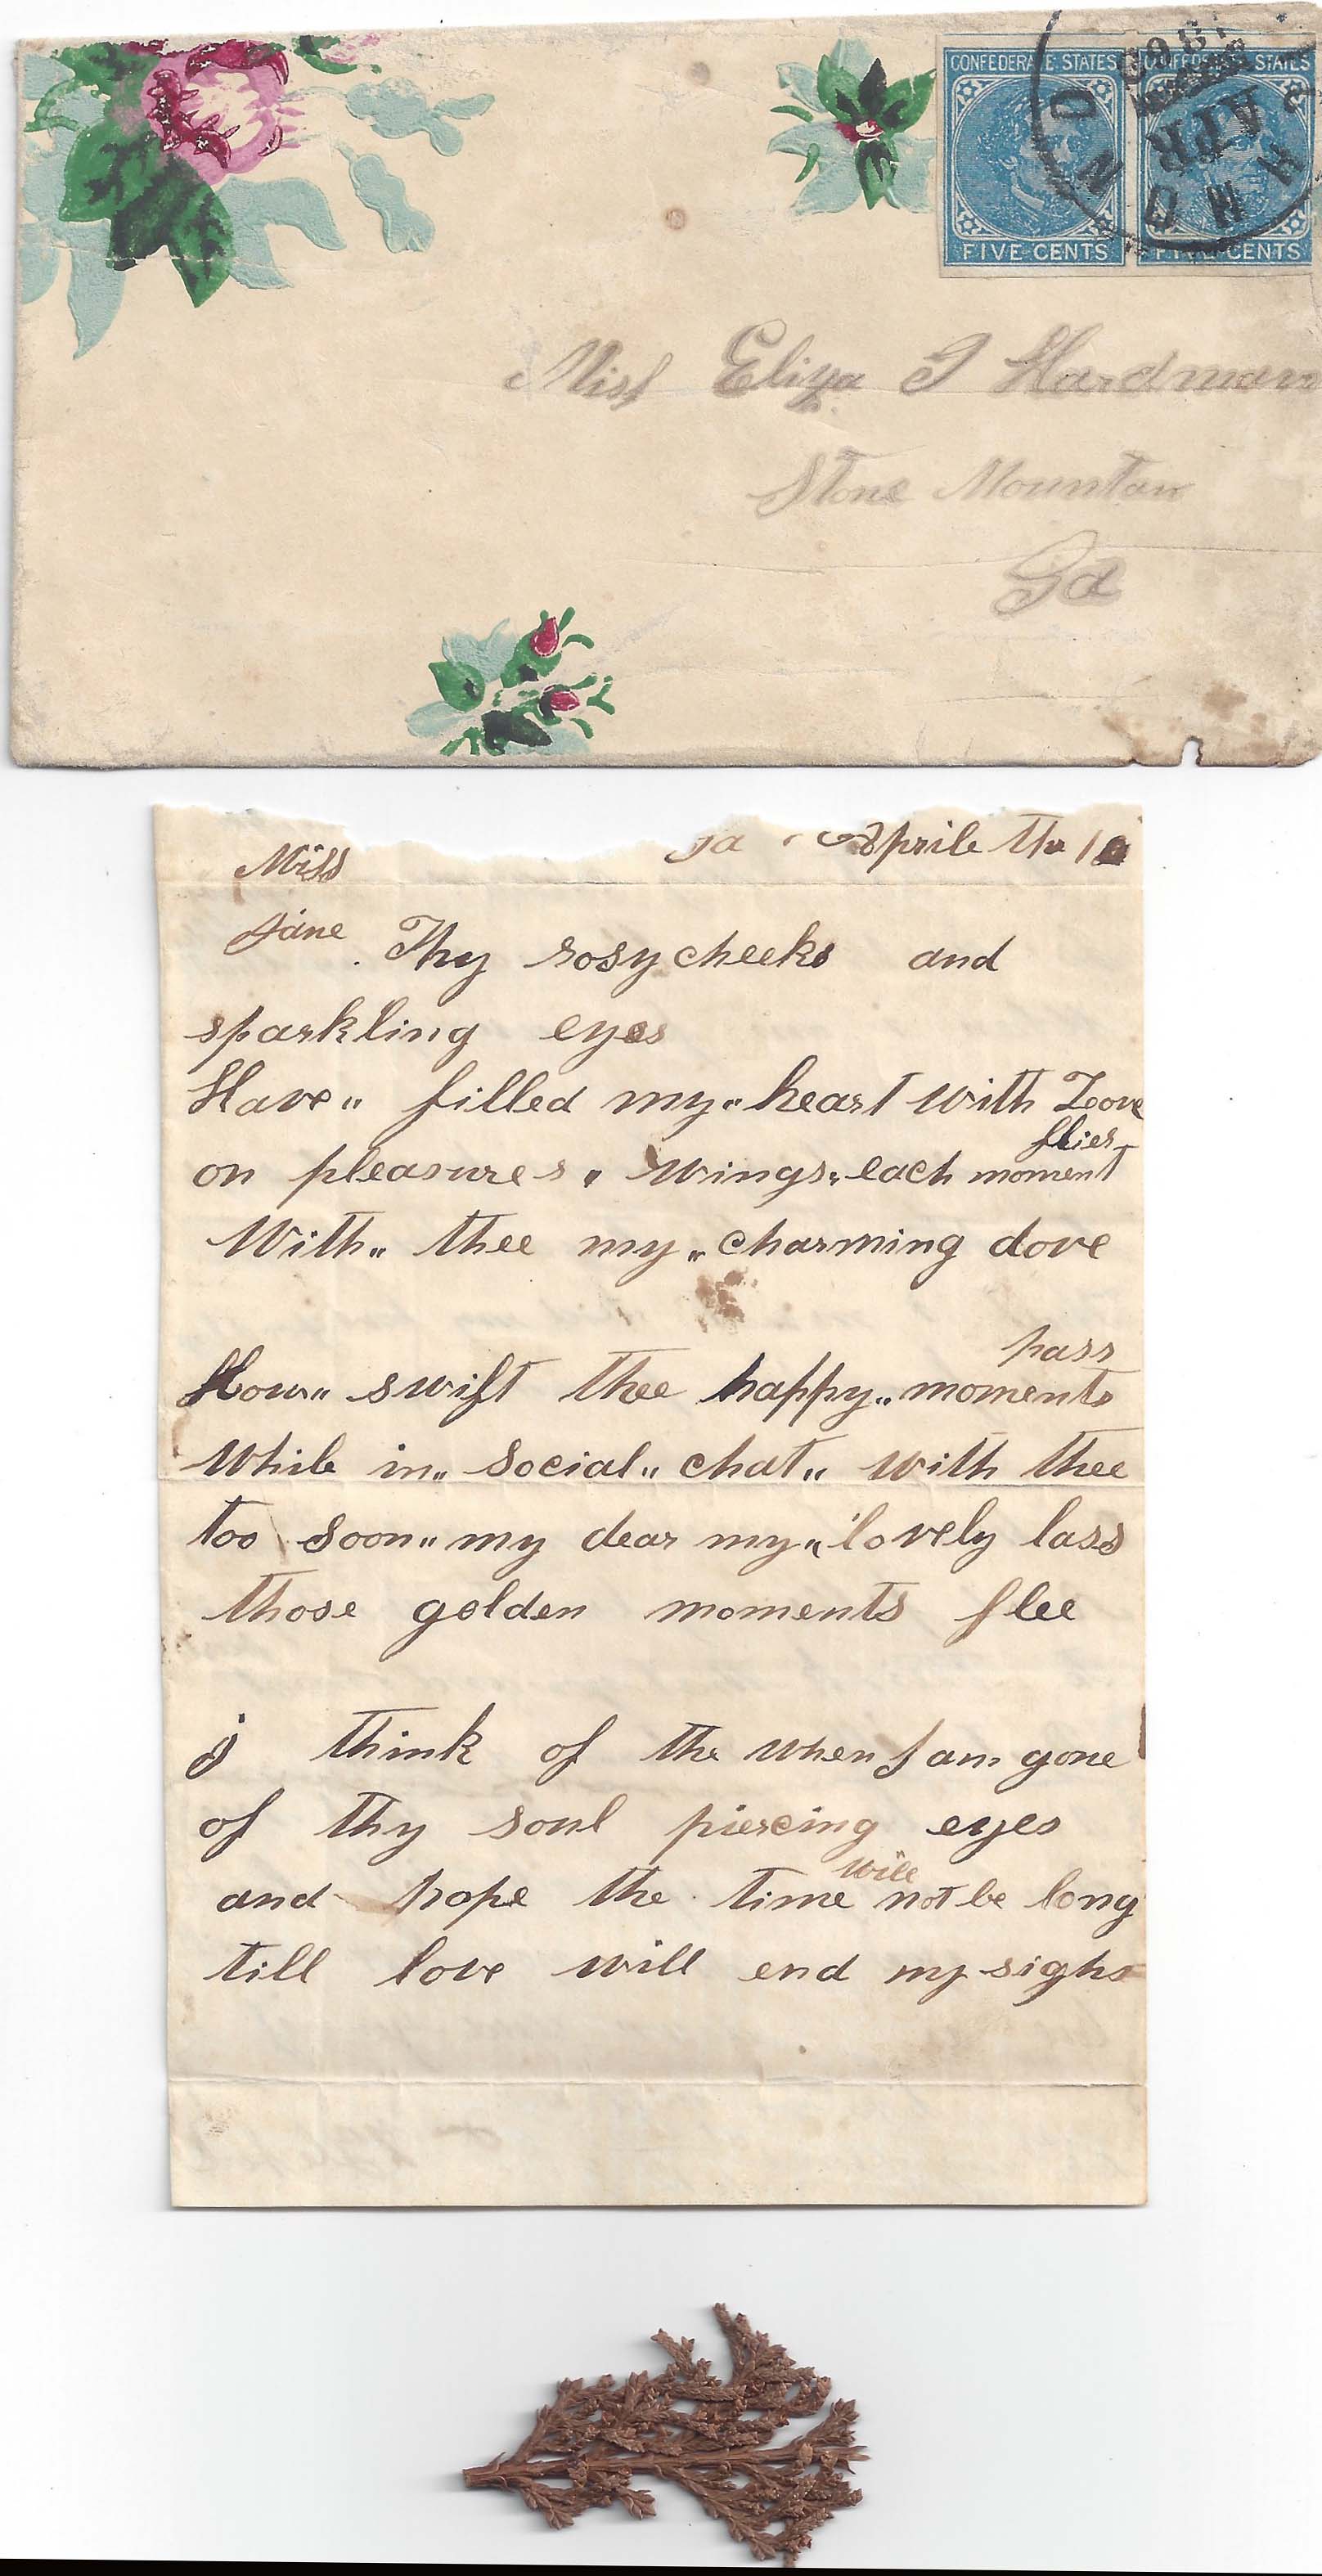 CONFEDERATE STATES CONFEDERATE STATES
APR
FIVE CENTS FIVE CENTS
Miss Eliza J Hardman
Stone Mountain
Ga
Ga Aprile the
Miss
Jane. Thy rosy cheeks and
sparkling eyes
Have„ filled my„ heart with Love
flies
on pleasures„ wings„ each moment
With„ thee my„ charming dove
pass
How„ swift thee happy„ moments
While in„ social„ chat„ with thee
too soon„ my dear my„ lovely lass
those golden moments flee
j think of the when I am gone
of thy soul piercing eyes
will
and hope the time not be long
till love will end my sighs